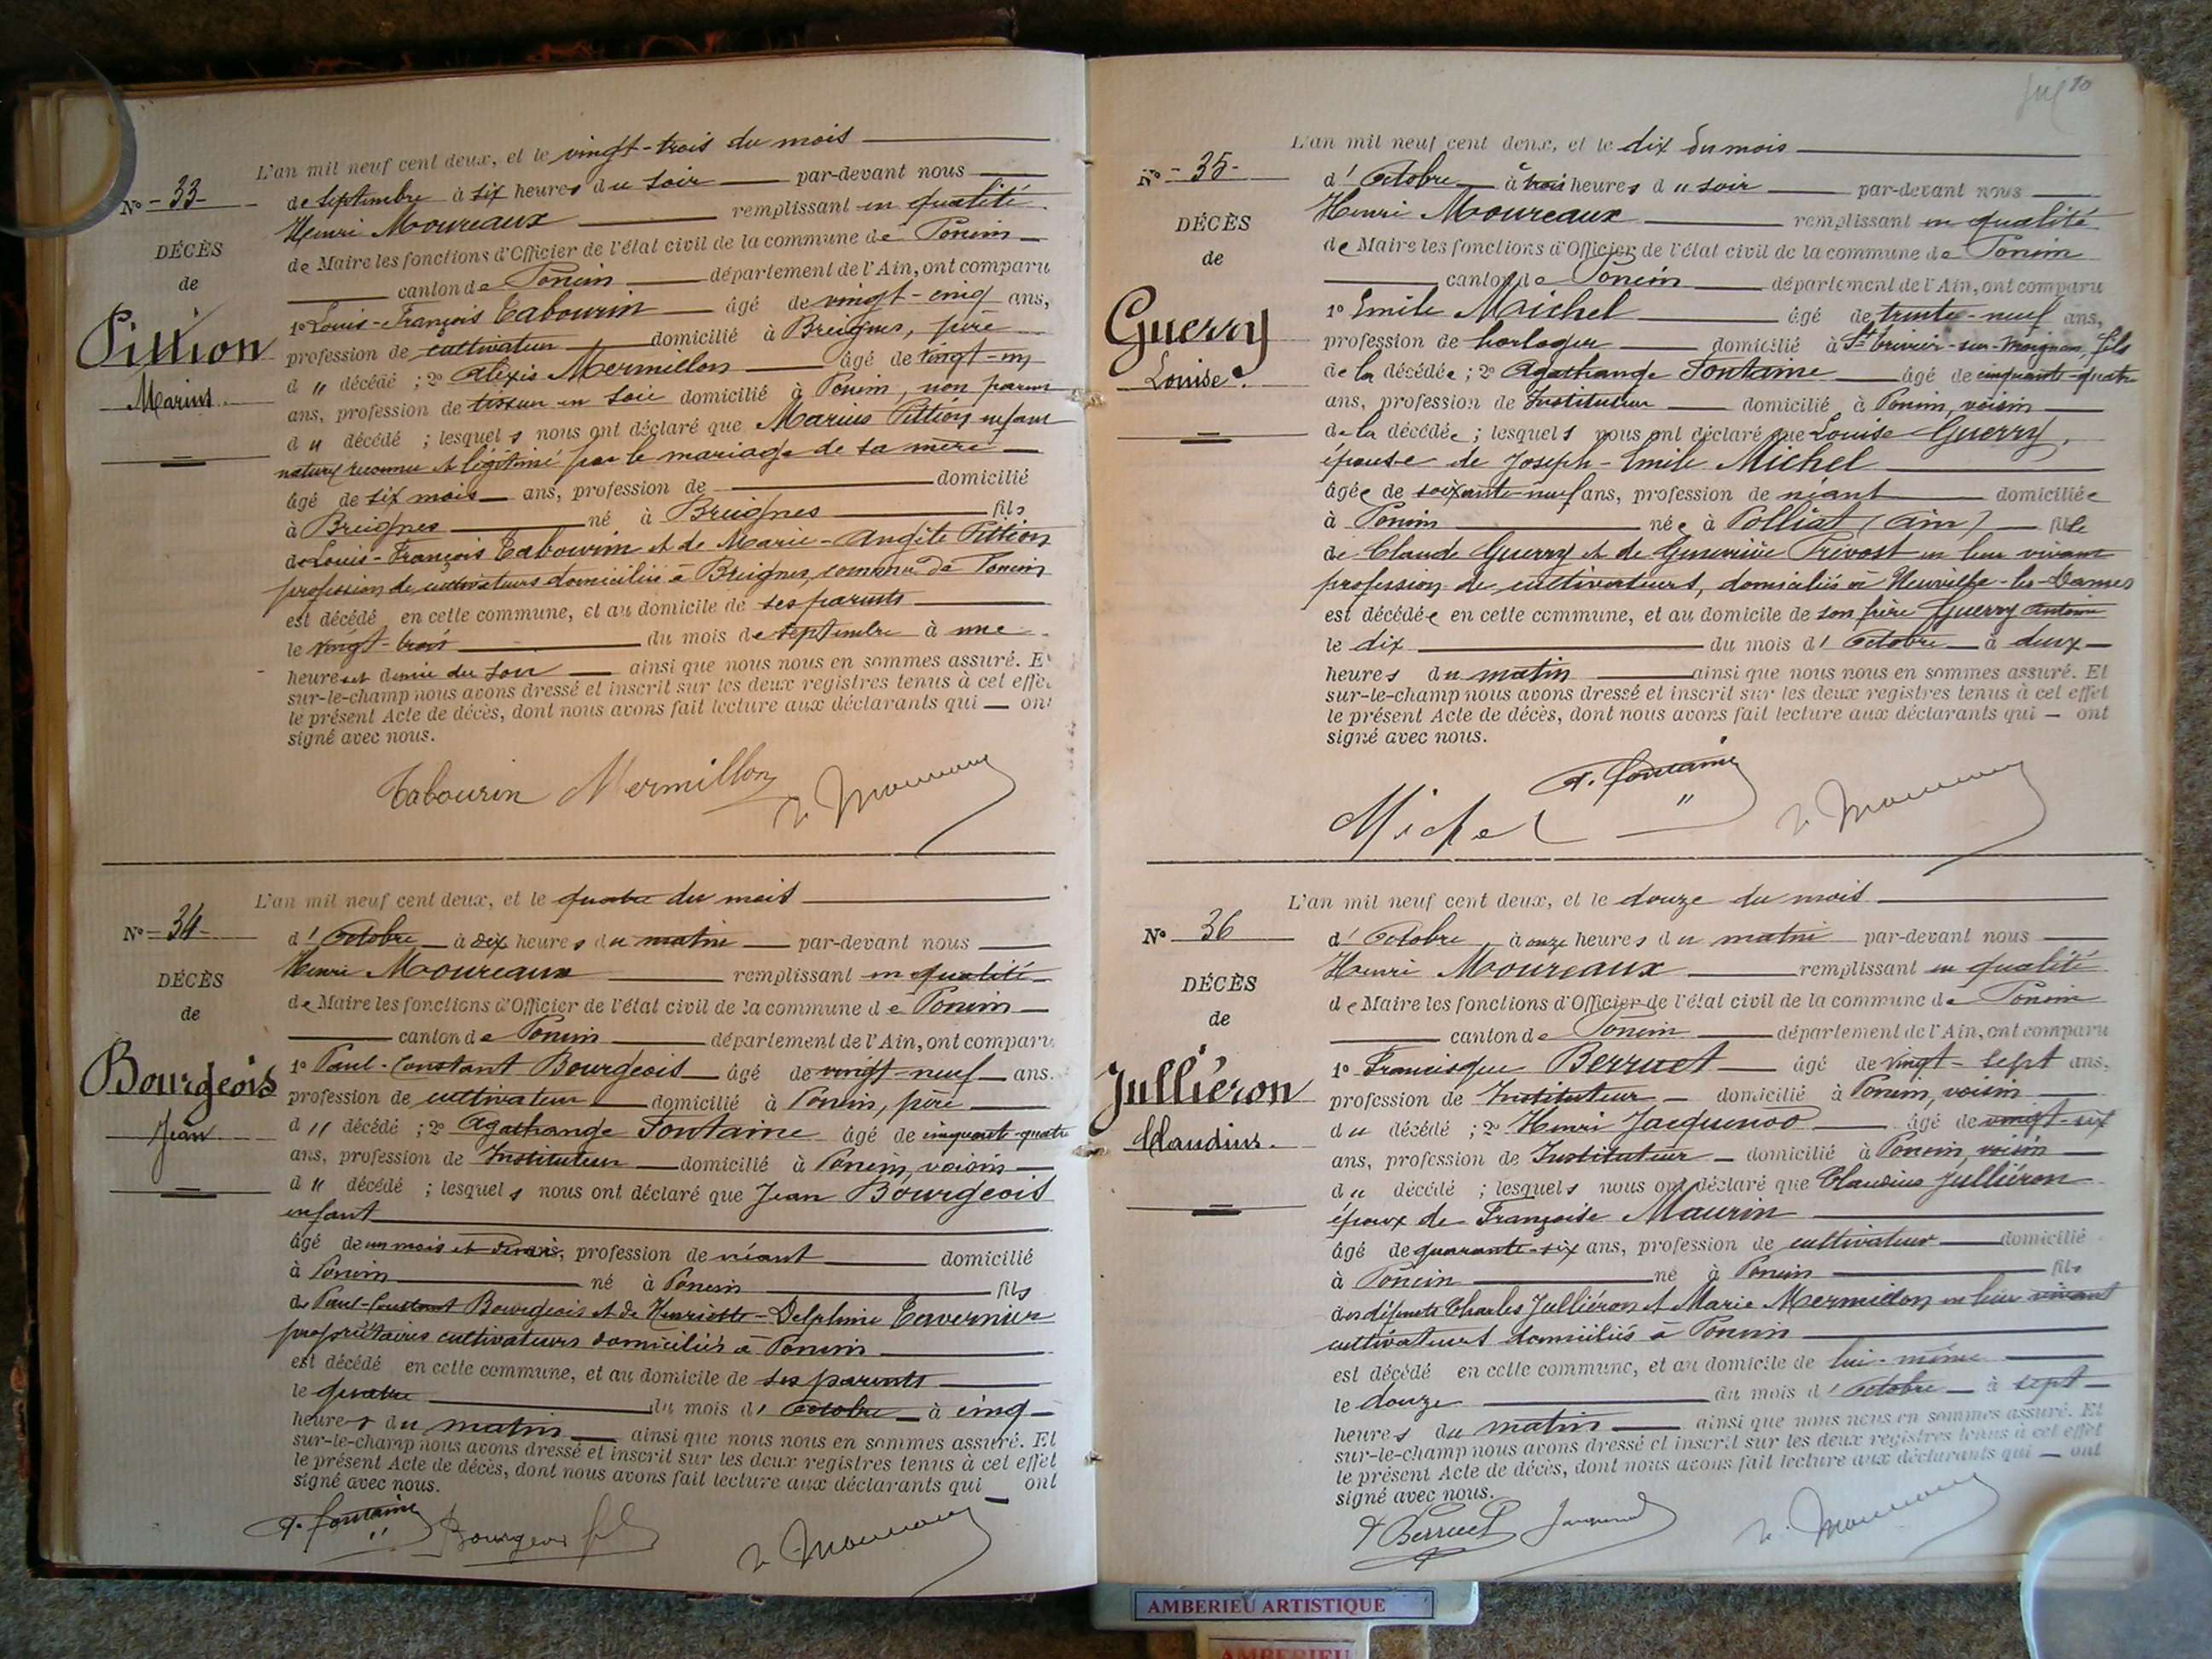 L'an mil neuf cent deux, et le vingt-trois du mois
No - 33 - de Septembre à six heures du soir par-devant nous
Henri Moureaux remplissant en qualité
DÉCÈS
de
Pittion
Marius
de Maire les fonctions d'Officier de l'état civil de la commune de Poncin
canton de Poncin département de l'Ain, ont comparu
1o Louis-François Tabourin âgé de vingt-cinq ans,
profession de cultivateur domicilié à Breignes, père
du décédé ; 2o Alexis Mermillon âgé de vingt-un
ans, profession de tisseur en soie domicilié à Poncin, non parent
du décédé ; lesquels nous ont déclaré que Marius Pittion enfant
naturel reconnu et légitimé par le mariage de sa mère
âgé de six mois ans, profession de domicilié
à Breignes né à Breignes fils
de Louis-François Tabourin et de Marie-Angèle Pittion
profession de cultivateurs domiciliés à Breignes, commune de Poncin
est décédé en cette commune, et au domicile de ses parents
le vingt-trois du mois de Septembre à une
heure et demie du soir ainsi que nous nous en sommes assuré. Et
sur-le-champ nous avons dressé et inscrit sur les deux registres tenus à cet effet
le présent Acte de décès, dont nous avons fait lecture aux déclarants qui ont
signé avec nous.
Tabourin Mermillon
L'an mil neuf cent deux, et le quatre du mois
No - 34 - d'Octobre à dix heures du matin par-devant nous
Henri Moureaux remplissant en qualité
DÉCÈS
de
Bourgeois
Jean
de Maire les fonctions d'Officier de l'état civil de la commune de Poncin
canton de Poncin département de l'Ain, ont comparu
1o Paul-Constant Bourgeois âgé de vingt-neuf ans.
profession de cultivateur domicilié à Poncin, père
du décédé ; 2o Agathange Fontaine âgé de cinquante-quatre
ans, profession de Instituteur domicilié à Poncin, voisin
du décédé ; lesquels nous ont déclaré que Jean Bourgeois
enfant
âgé de un mois et demi, profession de néant domicilié
à Poncin né à Poncin fils
de Paul-Constant Bourgeois et de Henriette-Delphine Tavernier
propriétaires cultivateurs domiciliés à Poncin
est décédé en cette commune, et au domicile de ses parents
le quatre du mois d'Octobre à cinq
heures du matin ainsi que nous nous en sommes assuré. Et
sur-le-champ nous avons dressé et inscrit sur les deux registres tenus à cet effet
le présent Acte de décès, dont nous avons fait lecture aux déclarants qui ont
signé avec nous.
A. Fontaine Bourgeois fils
10
L'an mil neuf cent deux, et le dix du mois
No - 35 - d'Octobre à trois heures du soir par-devant nous
Henri Moureaux remplissant en qualité
DÉCÈS
de
Guerry
Louise
de Maire les fonctions d'Officier de l'état civil de la commune de Poncin
canton de Poncin département de l'Ain, ont comparu
1o Emile Michel âgé de trente-neuf ans,
profession de horloger domicilié à St Trivier-sur-Moignans, fils
de la décédée ; 2o Agathange Fontaine âgé de cinquante-quatre
ans, profession de Instituteur domicilié à Poncin, voisin
de la décédée ; lesquels nous ont déclaré que Louise Guerry,
épouse de Joseph-Emile Michel
âgée de soixante-neuf ans, profession de néant domiciliée
à Poncin née à Polliat (Ain) fille
de Claude Guerry et de Geneviève Prévost en leur vivant
profession de cultivateurs, domiciliés à Neuville-les-Dames
est décédée en cette commune, et au domicile de son frère Guerry Antoine
le dix du mois d'Octobre à deux
heures du matin ainsi que nous nous en sommes assuré. Et
sur-le-champ nous avons dressé et inscrit sur les deux registres tenus à cet effet
le présent Acte de décès, dont nous avons fait lecture aux déclarants qui ont
signé avec nous.
A. Fontaine
Michel
L'an mil neuf cent deux, et le douze du mois
No 36 d'Octobre à onze heures du matin par-devant nous
Henri Moureaux remplissant en qualité
DÉCÈS
de
Julliéron
Claudius
de Maire les fonctions d'Officier de l'état civil de la commune de Poncin
canton de Poncin département de l'Ain, ont comparu
1o Francisque Berruet âgé de vingt-sept ans,
profession de Instituteur domicilié à Poncin, voisin
du décédé ; 2o Henri Jacquenod âgé de vingt-six
ans, profession de Instituteur domicilié à Poncin, voisin
du décédé ; lesquels nous ont déclaré que Claudius Julliéron
époux de Françoise Maurin
âgé de quarante-six ans, profession de cultivateur domicilié
à Poncin né à Poncin fils
des défunts Charles Julliéron et Marie Mermillon en leur vivant
cultivateurs domiciliés à Poncin
est décédé en cette commune, et au domicile de lui-même
le douze du mois d'Octobre à sept
heures du matin ainsi que nous nous en sommes assuré. Et
sur-le-champ nous avons dressé et inscrit sur les deux registres tenus à cet effet
le présent Acte de décès, dont nous avons fait lecture aux déclarants qui ont
signé avec nous.
F Berruet Jacquenod
AMBERIEU ARTISTIQUE
AMBERIEU